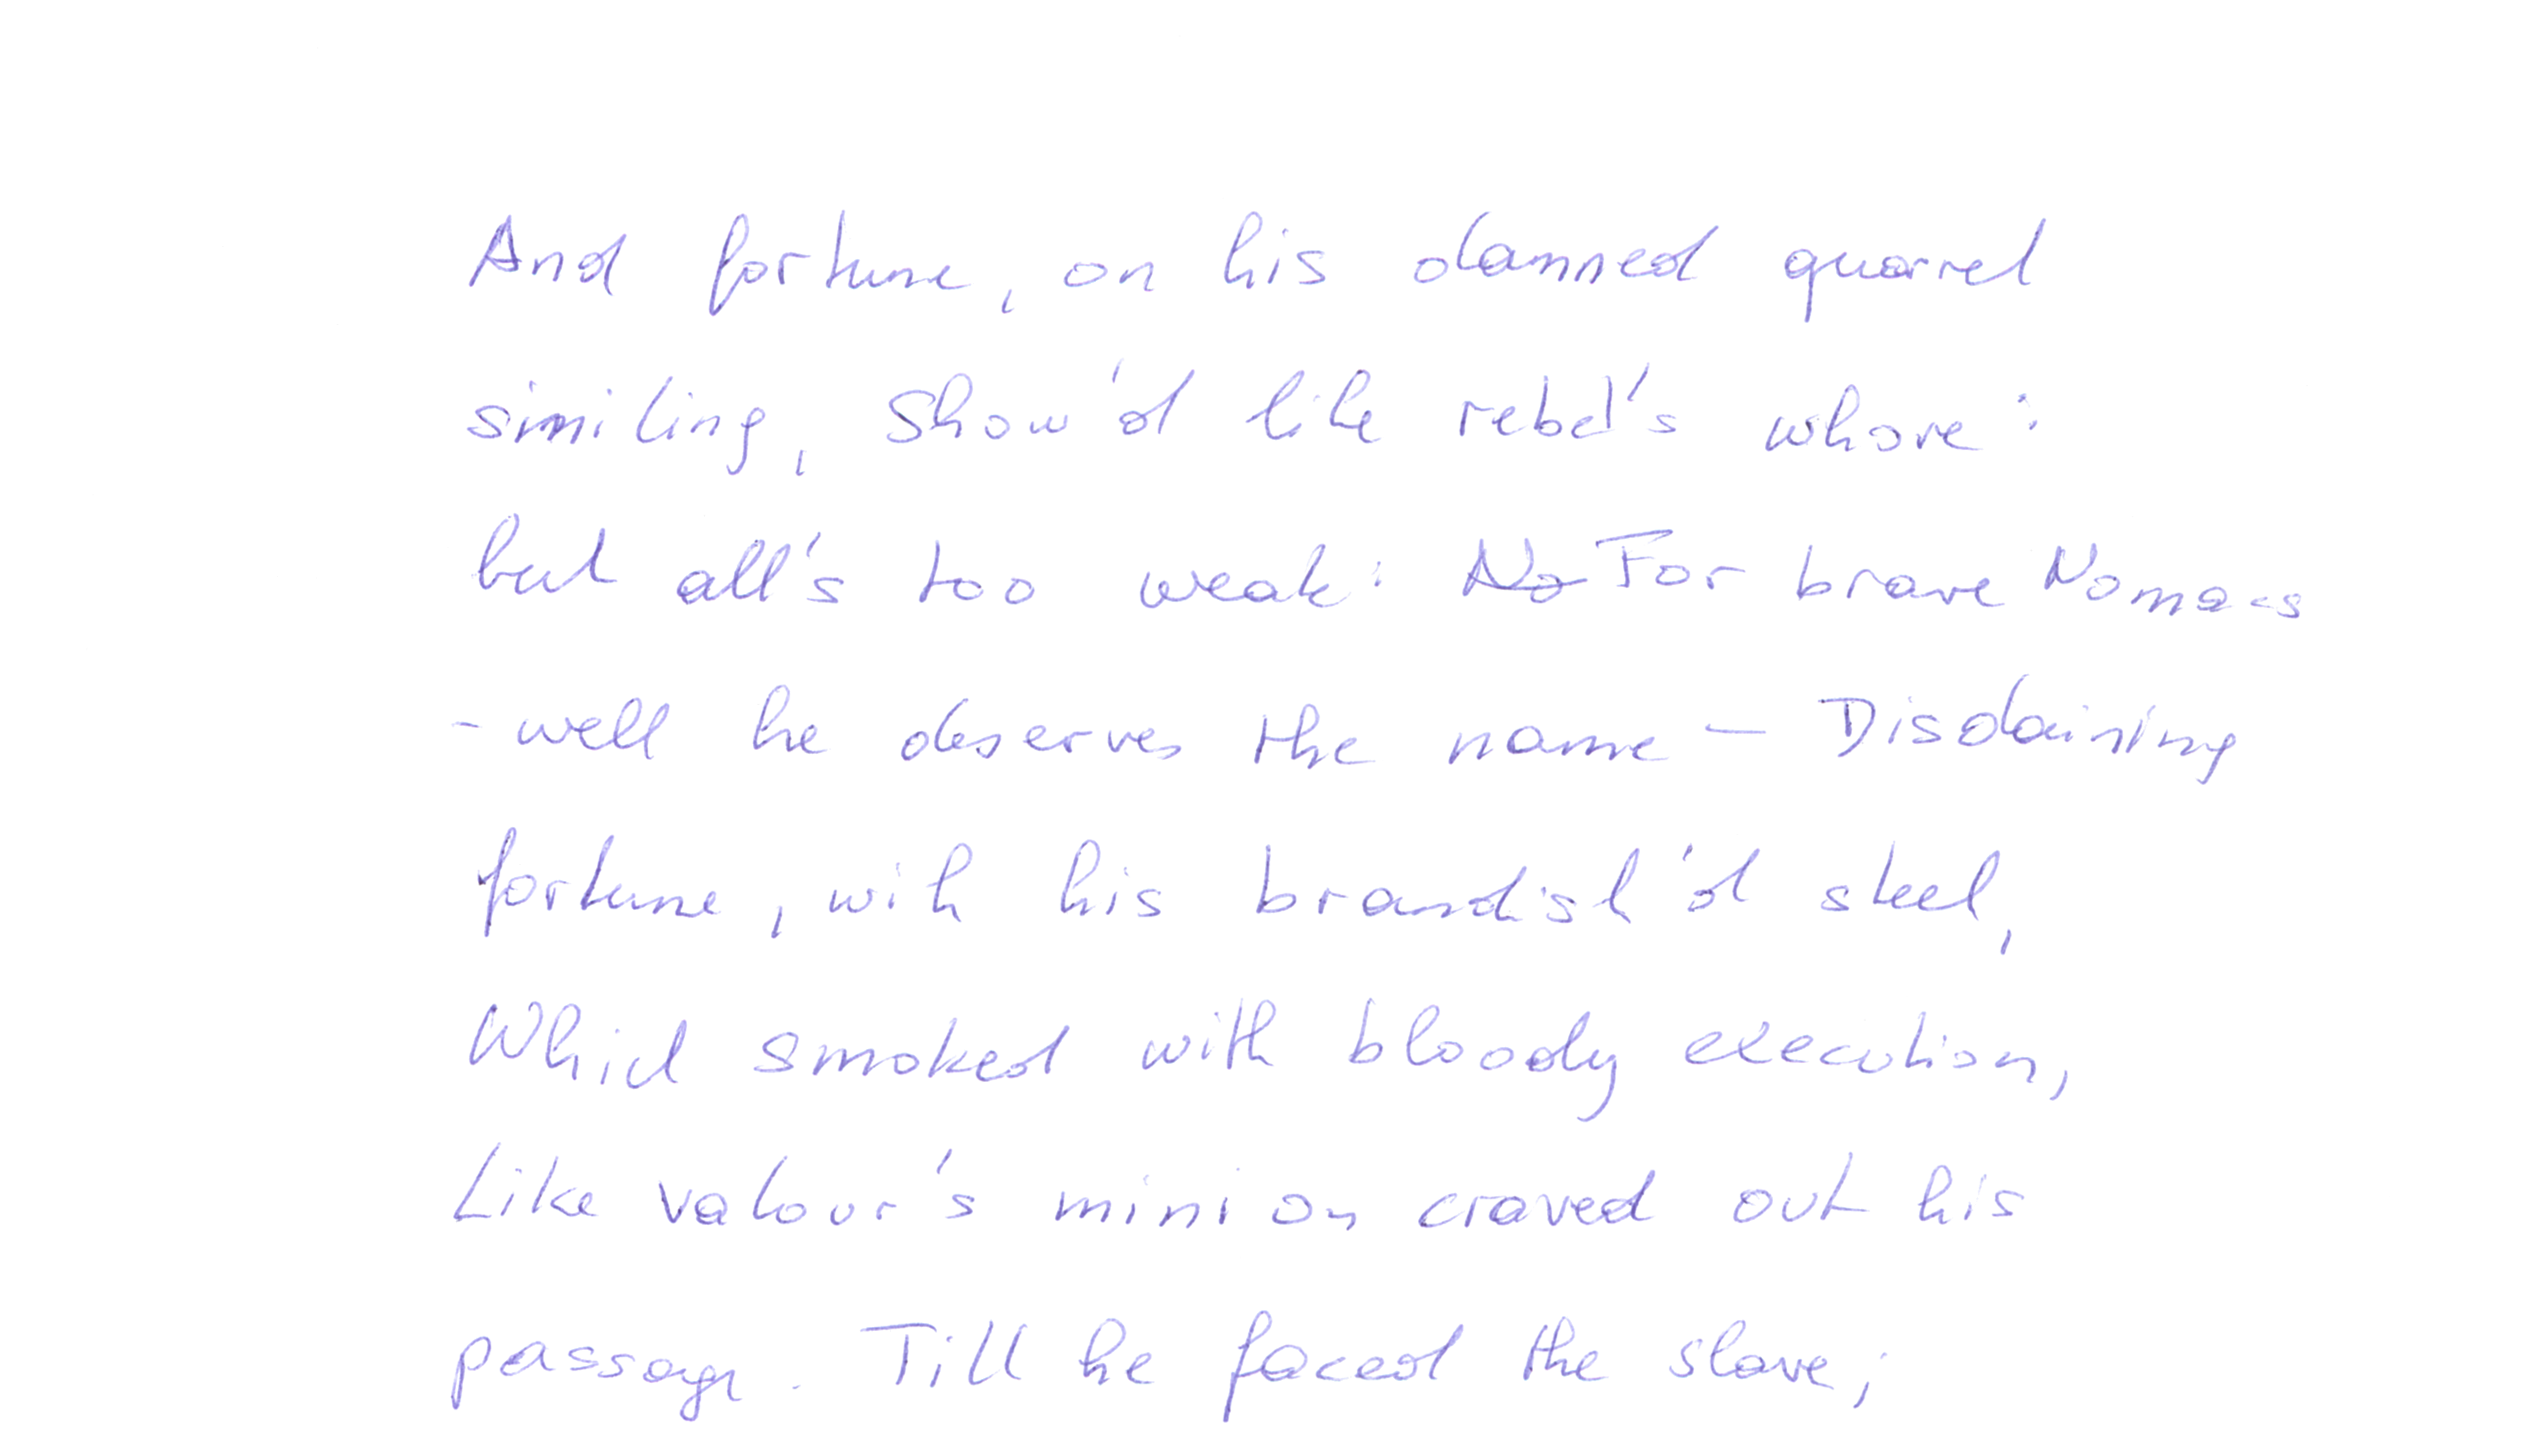 And fortune, on his damned quarrel
similing, Show'd like rebel's whore:
but all's too weak: No For brave Nomacs
- well he deserves the name - Disdaining
fortune, wih his brandish'd steel,
Which smoked with bloody execution,
Like valour's minion craved out his
passage. Till he faced the slave;